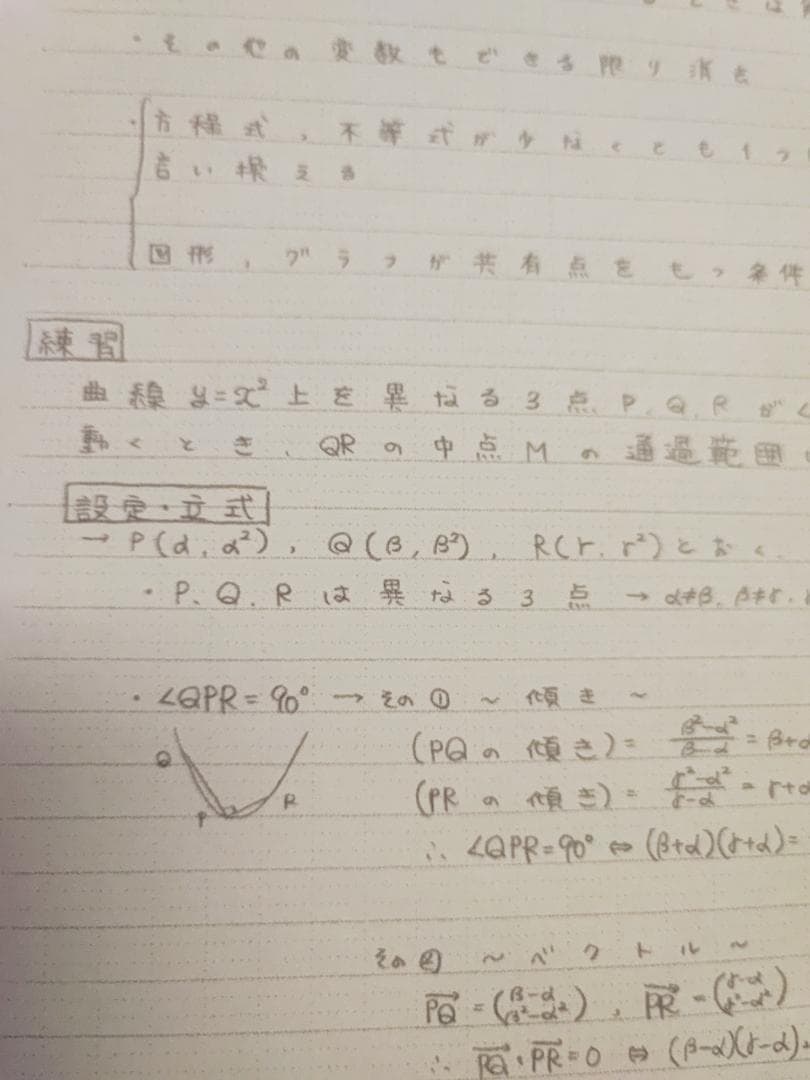 ときは
・その他の変数もできる限り消去
・方程式、不等式が少なくとも1つ
言い換える
図形、グラフが共有点をもつ条件
練習
曲線 y=x² 上を異なる3点 P、Q、R が
動くとき、QRの中点Mの通過範囲
設定・立式
→ P(α, α²), Q(β, β²), R(γ, γ²)とおく.
・P、Q、Rは異なる3点 → α≠β, β≠γ,
・∠QPR=90° → その① ～傾き～
(PQの傾き)= (β²-α²)/(β-α) = β+α
Q
(PRの傾き)= (γ²-α²)/(γ-α) = γ+α
P R
∴ ∠QPR=90° ⇔ (β+α)(γ+α)=
その② ～ベクトル～
PQ→ = (β-α, β²-α²), PR→ = (γ-α, γ²-α²)
∴ PQ→・PR→=0 ⇔ (β-α)(γ-α)+